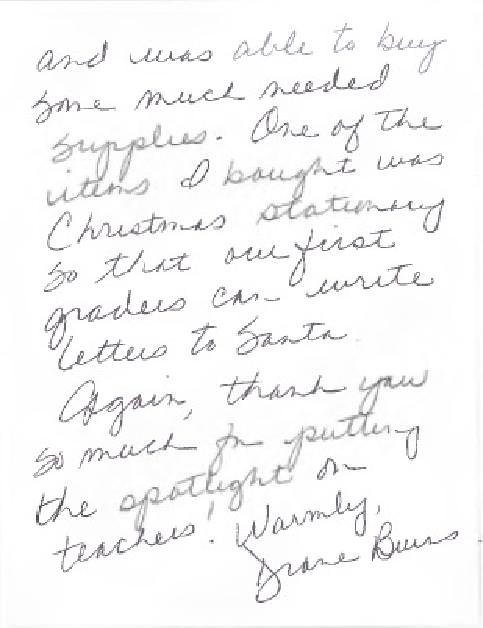 and was able to buy
some much needed
supplies. One of the
items I bought was
Christmas stationary
so that our first
graders can write
letters to Santa.
Again, thank you
so much for putting
the spotlight on
teachers! Warmly,
Diane Burns